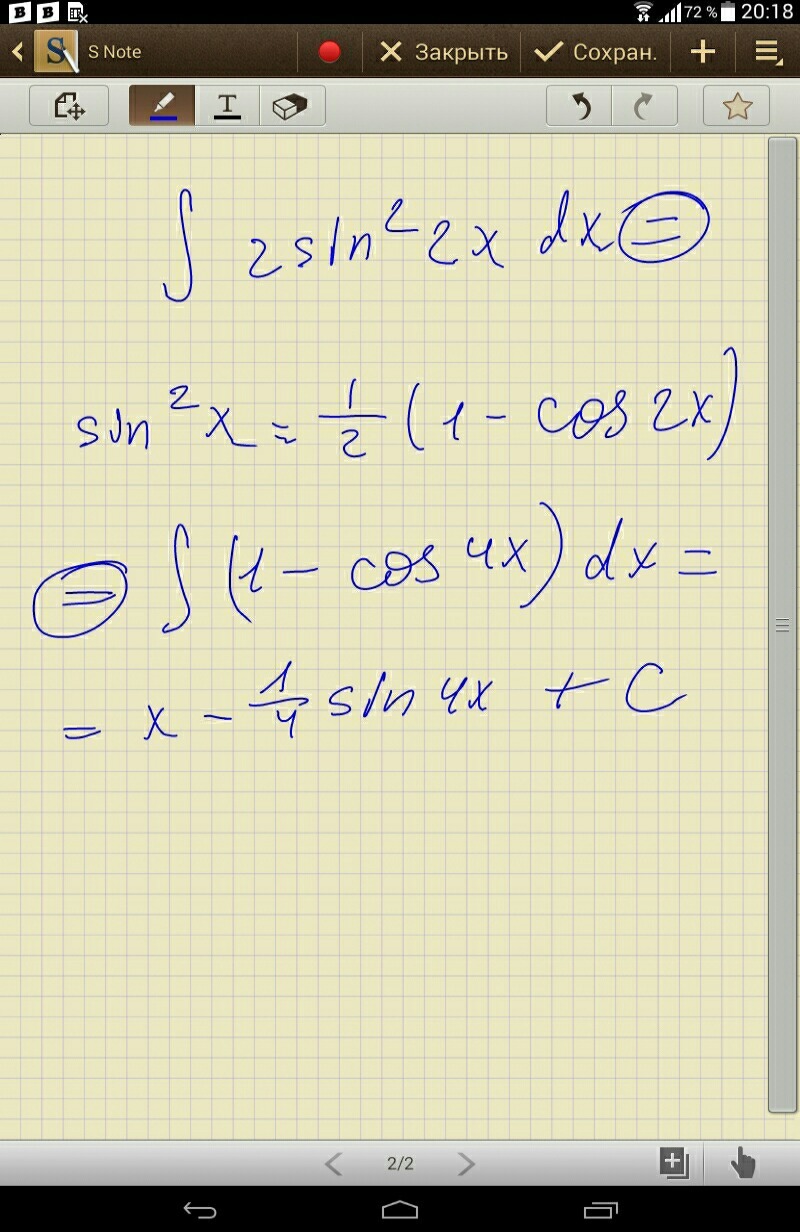 72 % 20:18
S Note Закрыть Сохран.
T
∫ 2 sin² 2x dx =
sin² x = 1/2 (1 - cos 2x)
= ∫ (1 - cos 4x) dx =
= x - 1/4 sin 4x + C
2/2